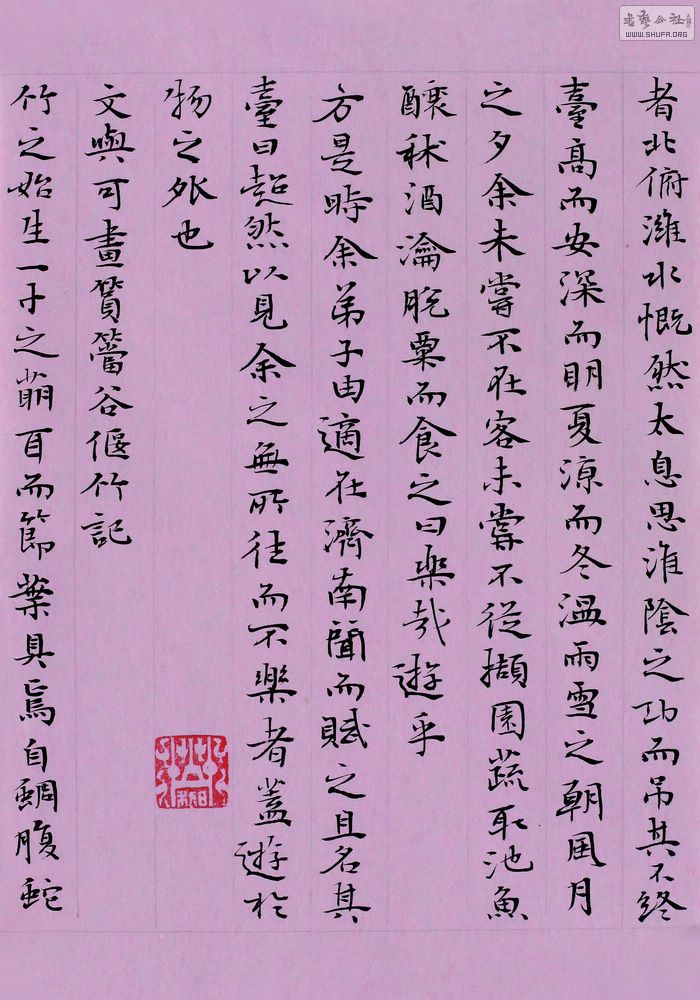 书艺公社
WWW.SHUFA.ORG
者北俯濰水慨然太息思淮陰之功而吊其不終
臺高而安深而明夏涼而冬溫雨雪之朝風月
之夕余未嘗不在客未嘗不從擷園蔬取池魚
釀秫酒瀹脫粟而食之曰樂哉遊乎
方是時余弟子由適在濟南聞而賦之且名其
臺曰超然以見余之無所往而不樂者蓋遊於
物之外也
文與可畫篔簹谷偃竹記
竹之始生一寸之萌耳而節葉具焉自蜩腹蛇